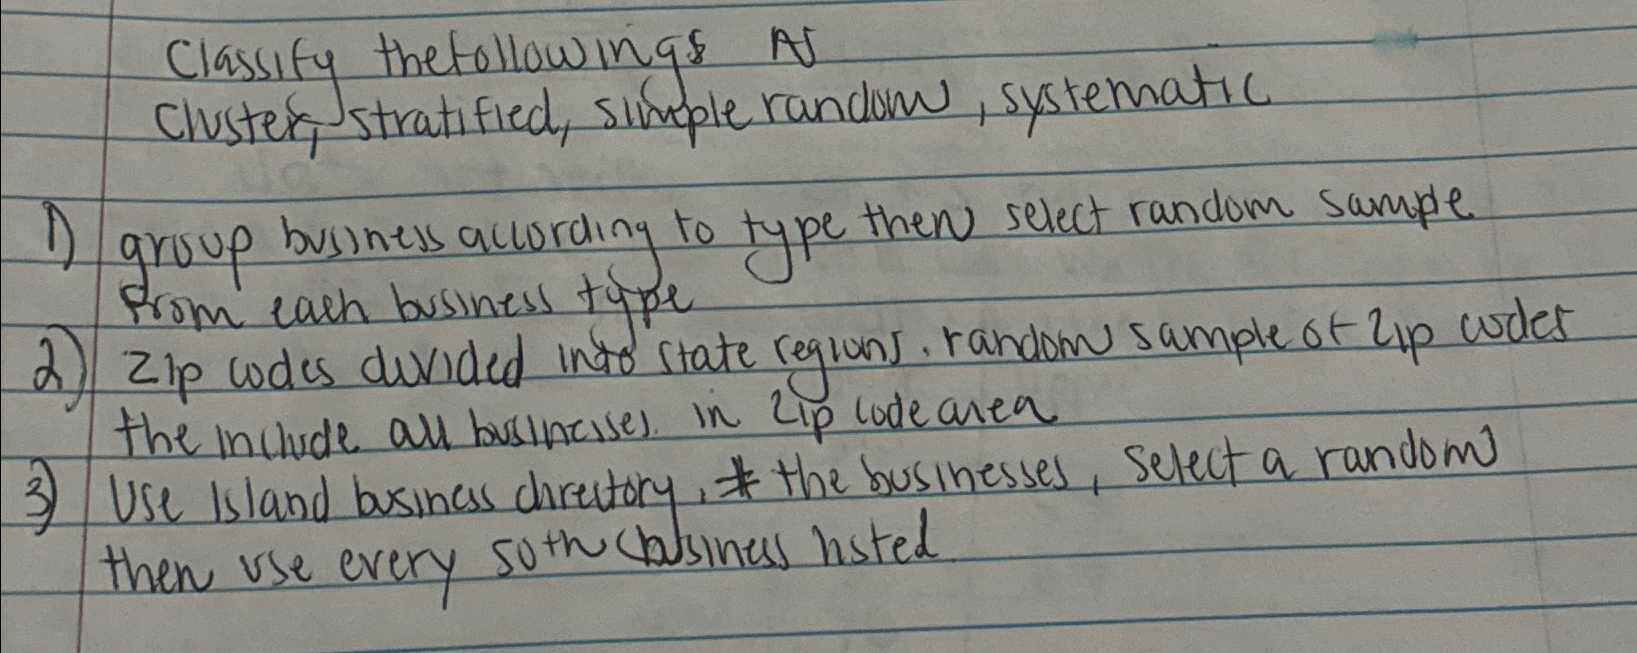 Classify the followings As
Cluster, stratified, simple random, systematic
1) group business according to type then select random sample
from each business type
2) Zip codes divided into state regions. random sample of zip codes
the include all businesses. in zip code area
3) Use Island business directory, # the businesses, select a random
then use every 50th (business listed